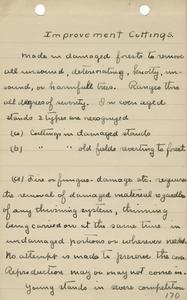 Improvement Cuttings.
Made in damaged forests to remove
all unsound, deteriorating, knotty, un-
sound, or harmfull trees. Ranges thru
all degrees of severity. In even aged
stands 2 types are recognized
(a) Cuttings in damaged stands
(b) " " old fields reverting to forest
(a) Fire or fungus - damage etc. requires
the removal of damaged material regardless
of any thinning system, thinning
being carried on at the same time in
undamaged portions or wherever needed.
No attempt is made to preserve the
Reproduction may or may not come in.
Young stands in severe competition
170